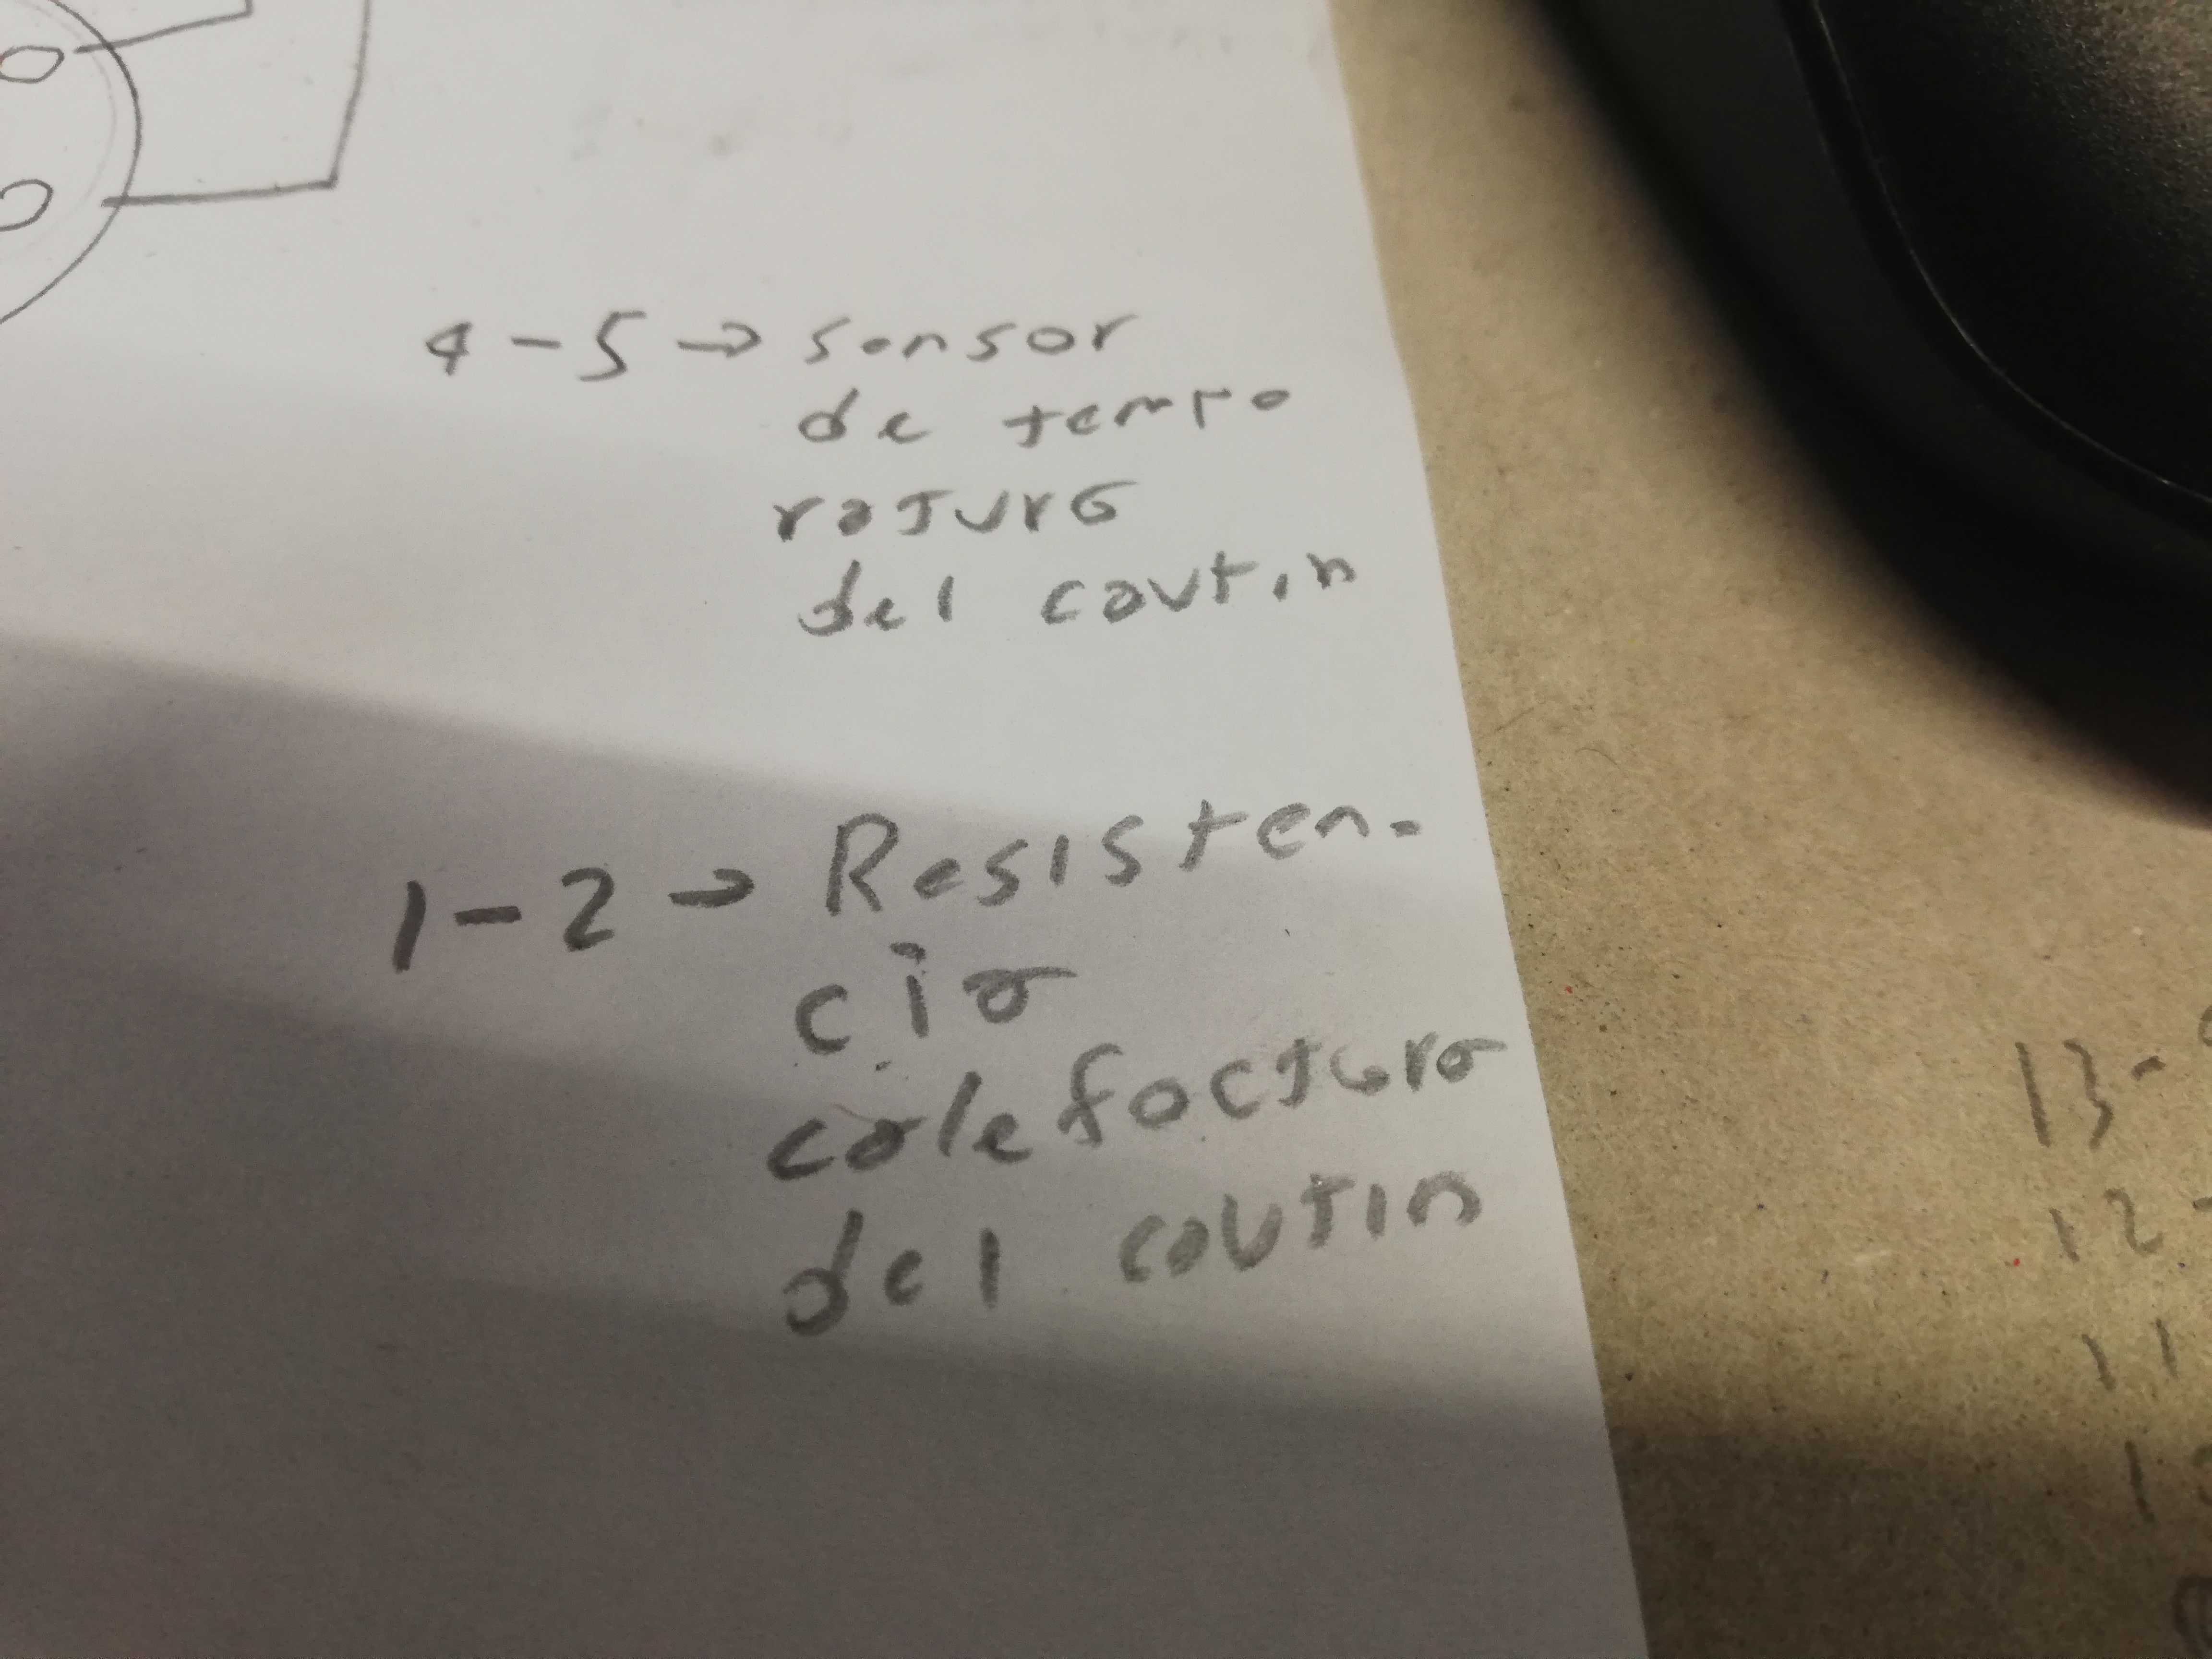 4-5 → sensor
de tempo
ratura
del cautin
1-2 → Resisten-
cia
calefactura
del cautin
13-
12-
11